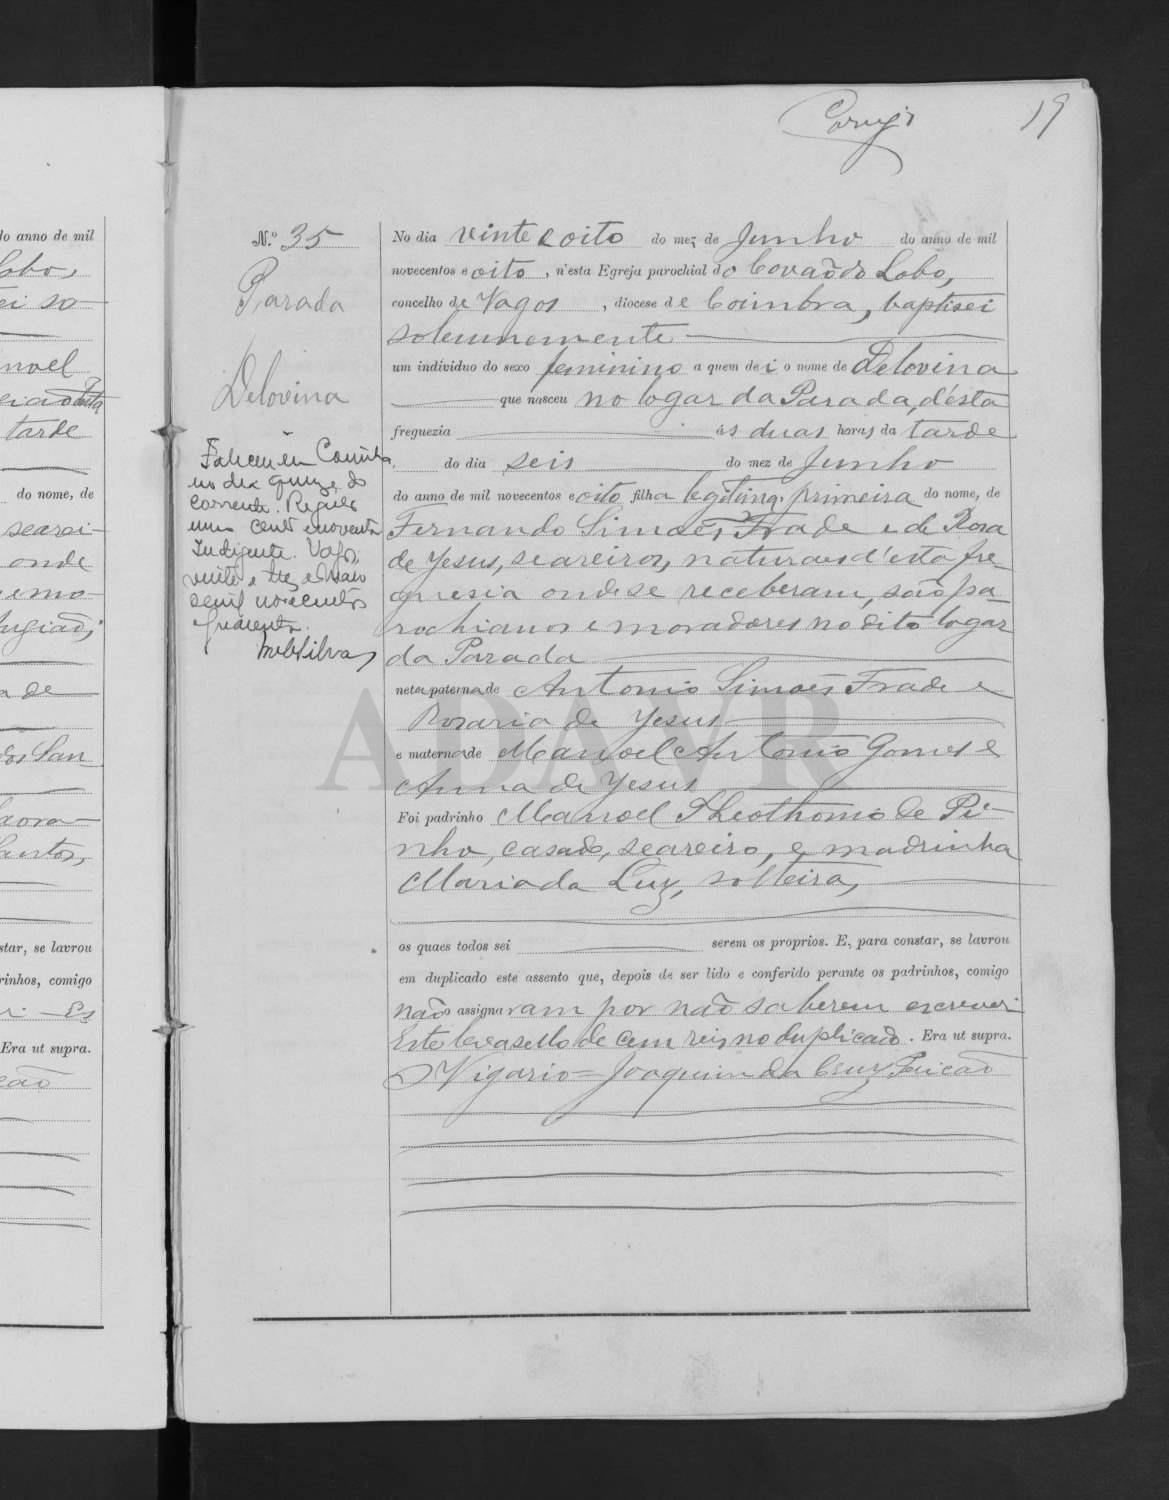 19
N.º 35
Parada
Delovina
Faleceu em Coimbra
no dia quinze do
corrente. Registo
num. cento e noventa
Indigente. Vagos,
vinte e tres de Maio
de mil novecentos
quarenta.
No dia vinte e oito do mez de Junho do anno de mil
novecentos e oito, n'esta Egreja parochial do Covão do Lobo,
concelho de Vagos, diocese de Coimbra, baptisei
solemnemente
um individuo do sexo feminino a quem dei o nome de Delovina
que nasceu no logar da Parada, d'esta
freguezia ás duas horas da tarde
do dia seis do mez de Junho
do anno de mil novecentos e oito filha legitima, primeira do nome, de
Fernando Simões Frade e de Rosa
de Jesus, seareiros, naturaes d'esta fre-
guesia onde se receberam, são pa-
rochianos e moradores no dito logar
da Parada
neta paterna de Antonio Simões Frade e
Rosaria de Jesus
e materna de Manoel Antonio Gomes e
Anna de Jesus
Foi padrinho Manoel Theothonio de Pi-
nho, casado, seareiro, e madrinha
Maria da Luz, solteira,
os quaes todos sei serem os proprios. E, para constar, se lavrou
em duplicado este assento que, depois de ser lido e conferido perante os padrinhos, comigo
não assignaram por não saberem escrever.
Este leva sello de cem reis no duplicado. Era ut supra.
O Vigario = Joaquim da Cruz
ADAVR
do anno de mil
Lobo,
noel
tarde
do nome, de
searei-
onde
de
dos San
Santos,
star, se lavrou
rinhos, comigo
Era ut supra.